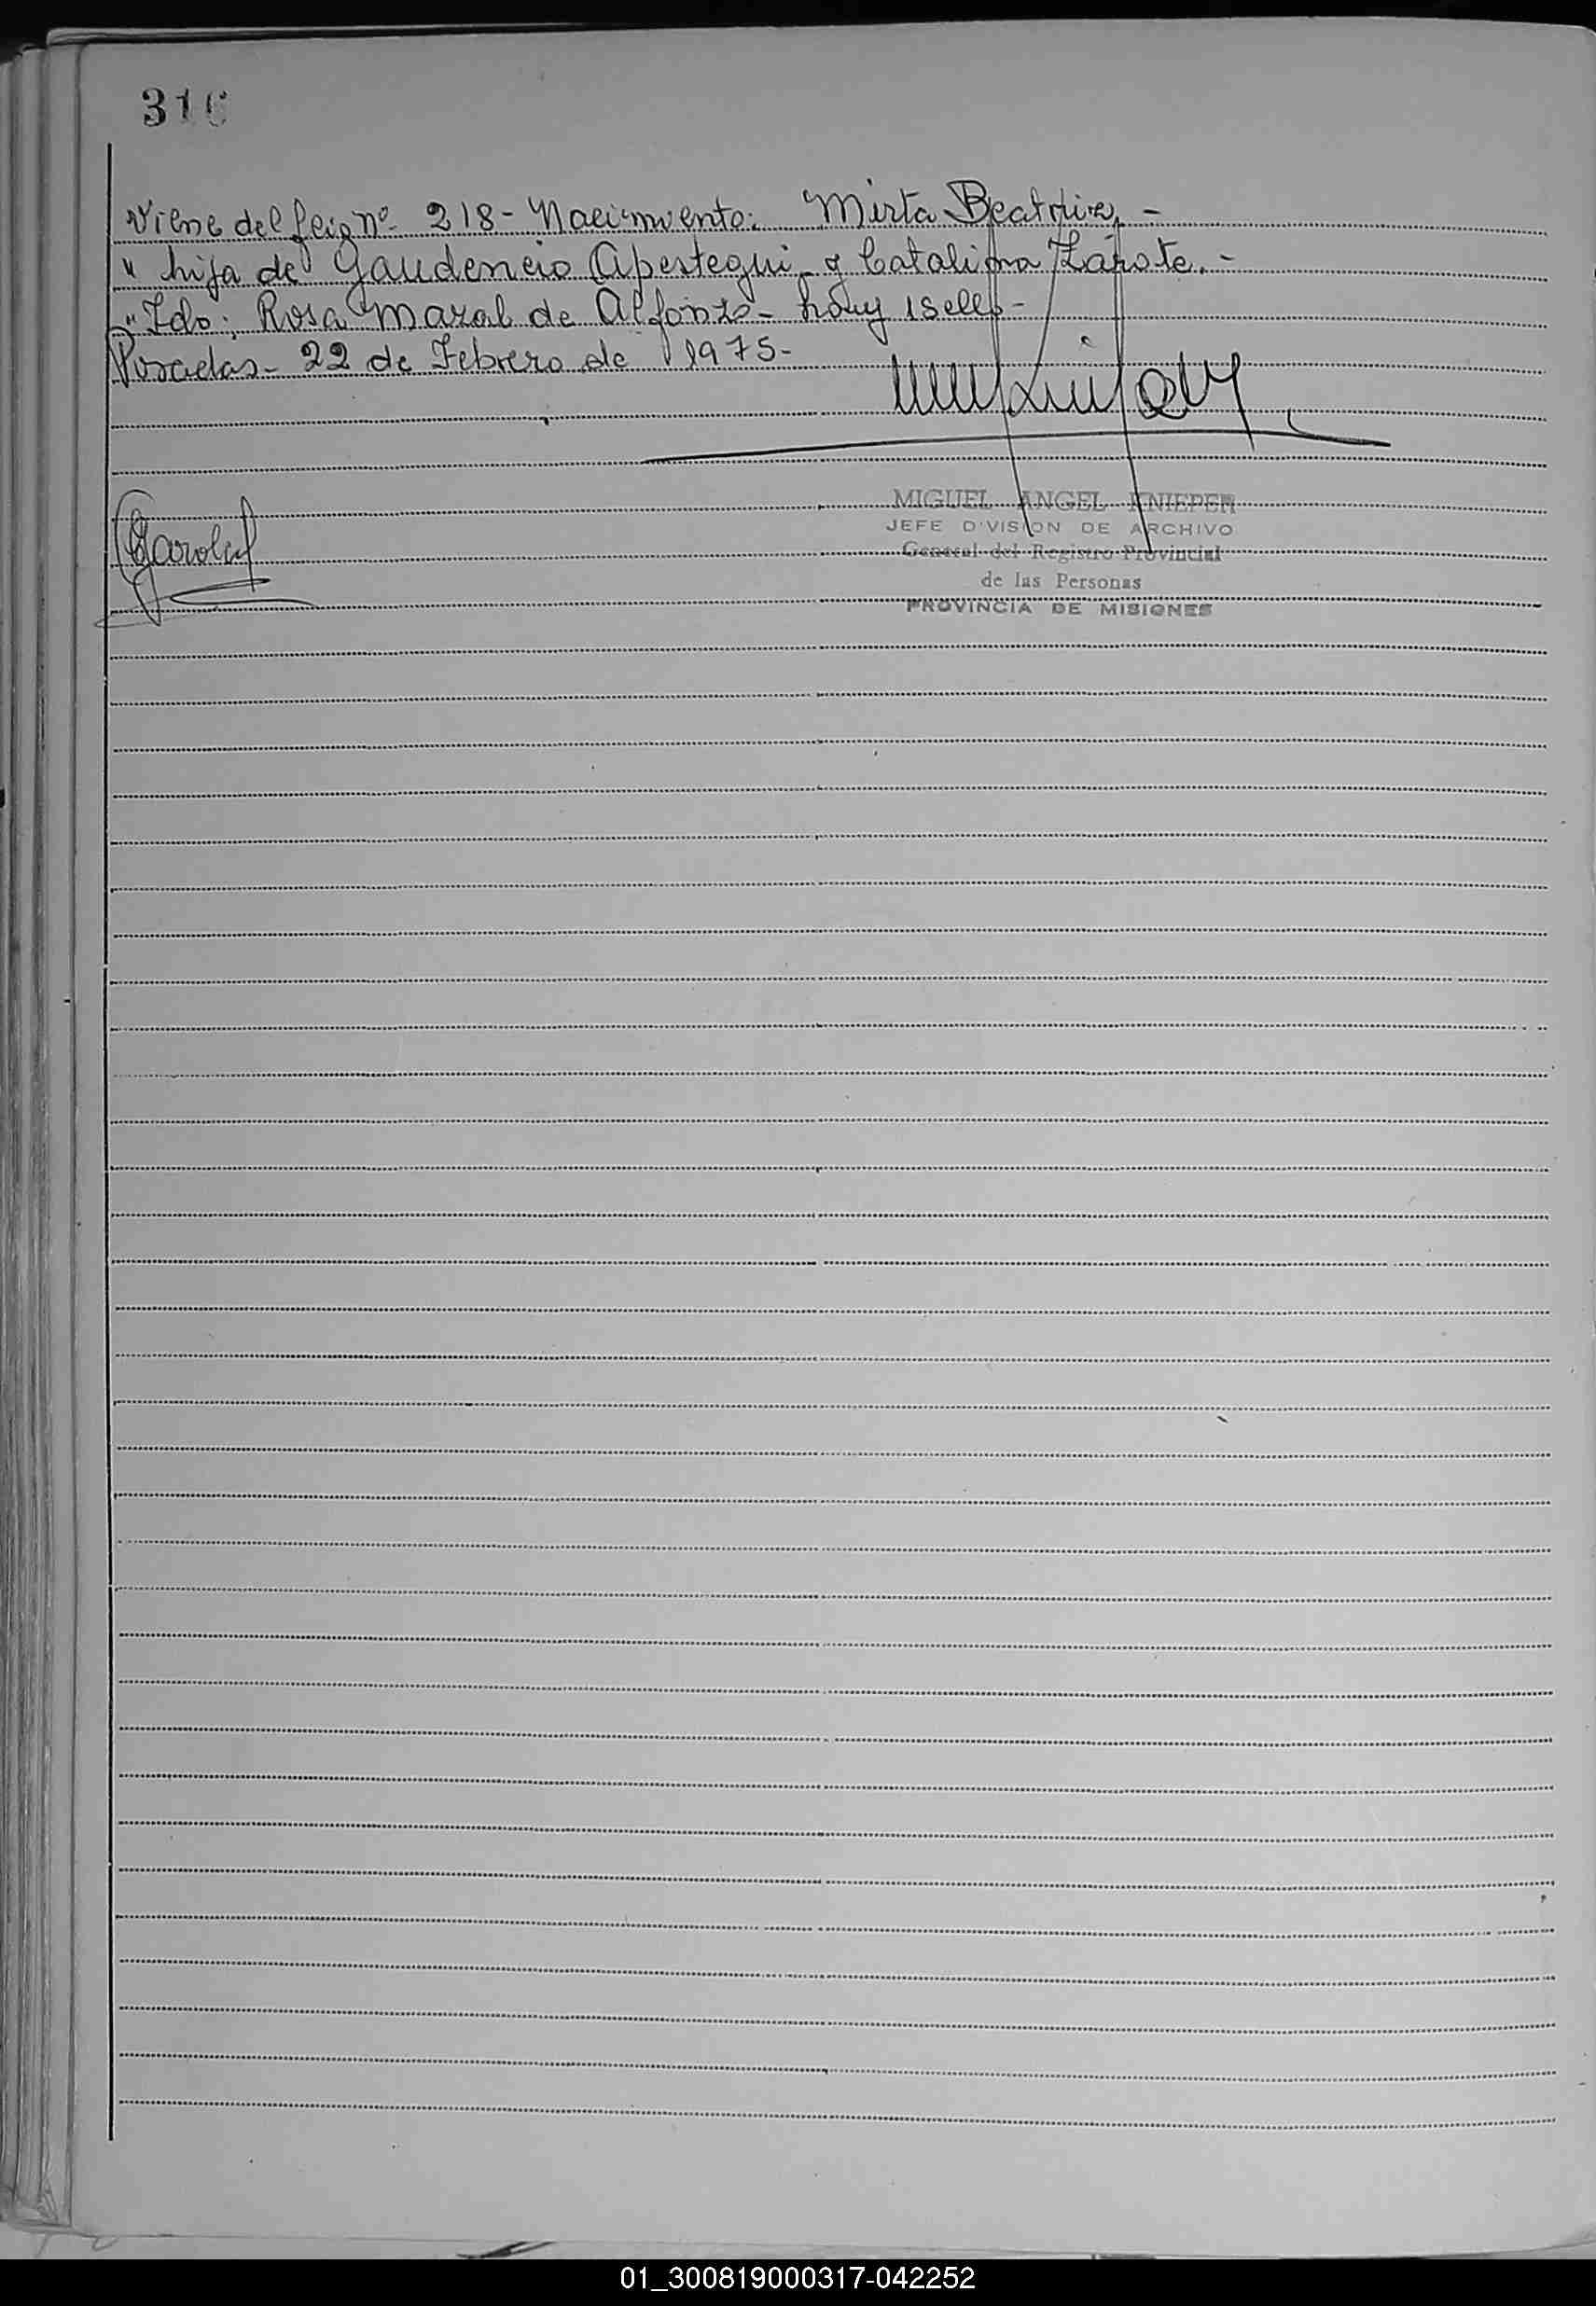 316
Viene del feio nº 218 - Nacimiento: Mirta Beatriz. -
" hija de Gaudencio Apestegui - y Catalina Zárate. -
" Fdo: Rosa Mazal de Alfonzo - hay 1 sello -
Posadas - 22 de Febrero de 1975 -
MIGUEL ANGEL KNIEPER
JEFE DIVISION DE ARCHIVO
General del Registro Provincial
de las Personas
PROVINCIA DE MISIONES
01_300819000317-042252